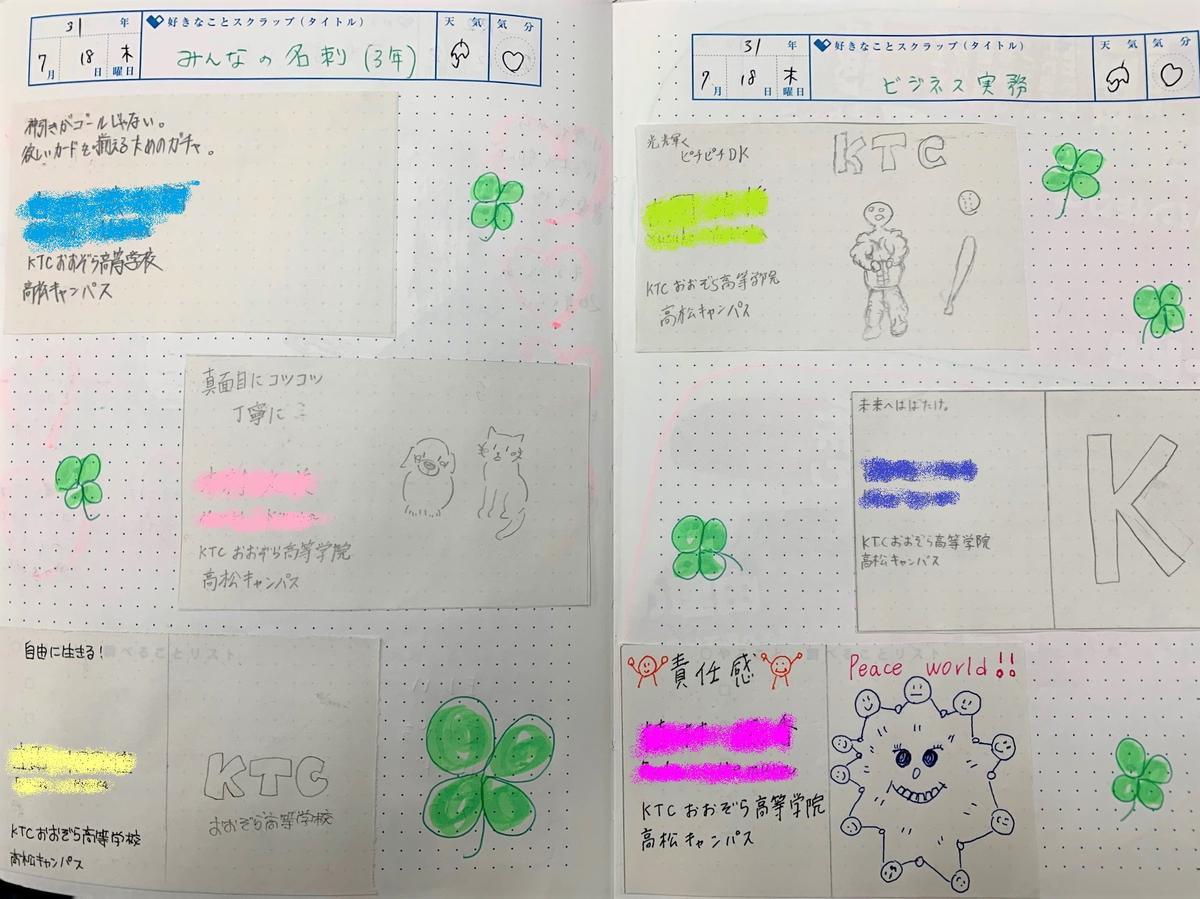 31 年 好きなことスクラップ(タイトル) 天気 気分
7月 18日 木曜日 みんなの名刺(3年)
神引きがゴールじゃない。
欲しいカードを揃えるためのガチャ。
KTCおおぞら高等学校
高松キャンパス
真面目にコツコツ
丁寧に
KTCおおぞら高等学院
高松キャンパス
自由に生きる!
KTCおおぞら高等学校
高松キャンパス
KTC
おおぞら高等学校
31 年 好きなことスクラップ(タイトル) 天気 気分
7月 18日 木曜日 ビジネス実務
光輝く
ピチピチDK
KTC
KTCおおぞら高等学院
高松キャンパス
未来へはばたけ。
KTCおおぞら高等学院
高松キャンパス
K
責任感
KTCおおぞら高等学院
高松キャンパス
Peace world!!